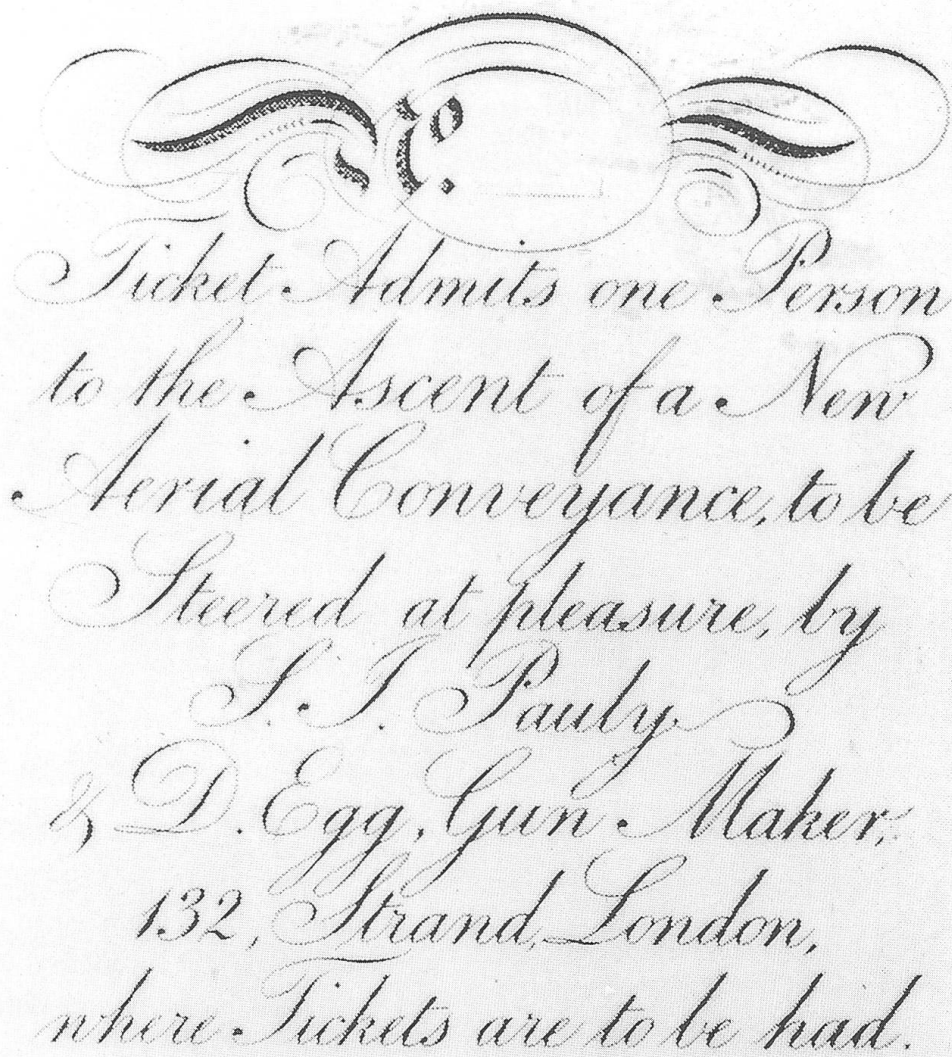 No.
Ticket Admits one Person
to the Ascent of a New
Aerial Conveyance, to be
Steered at pleasure, by
S. J. Pauly
& D. Egg, Gun Maker,
132, Strand, London,
where Tickets are to be had.